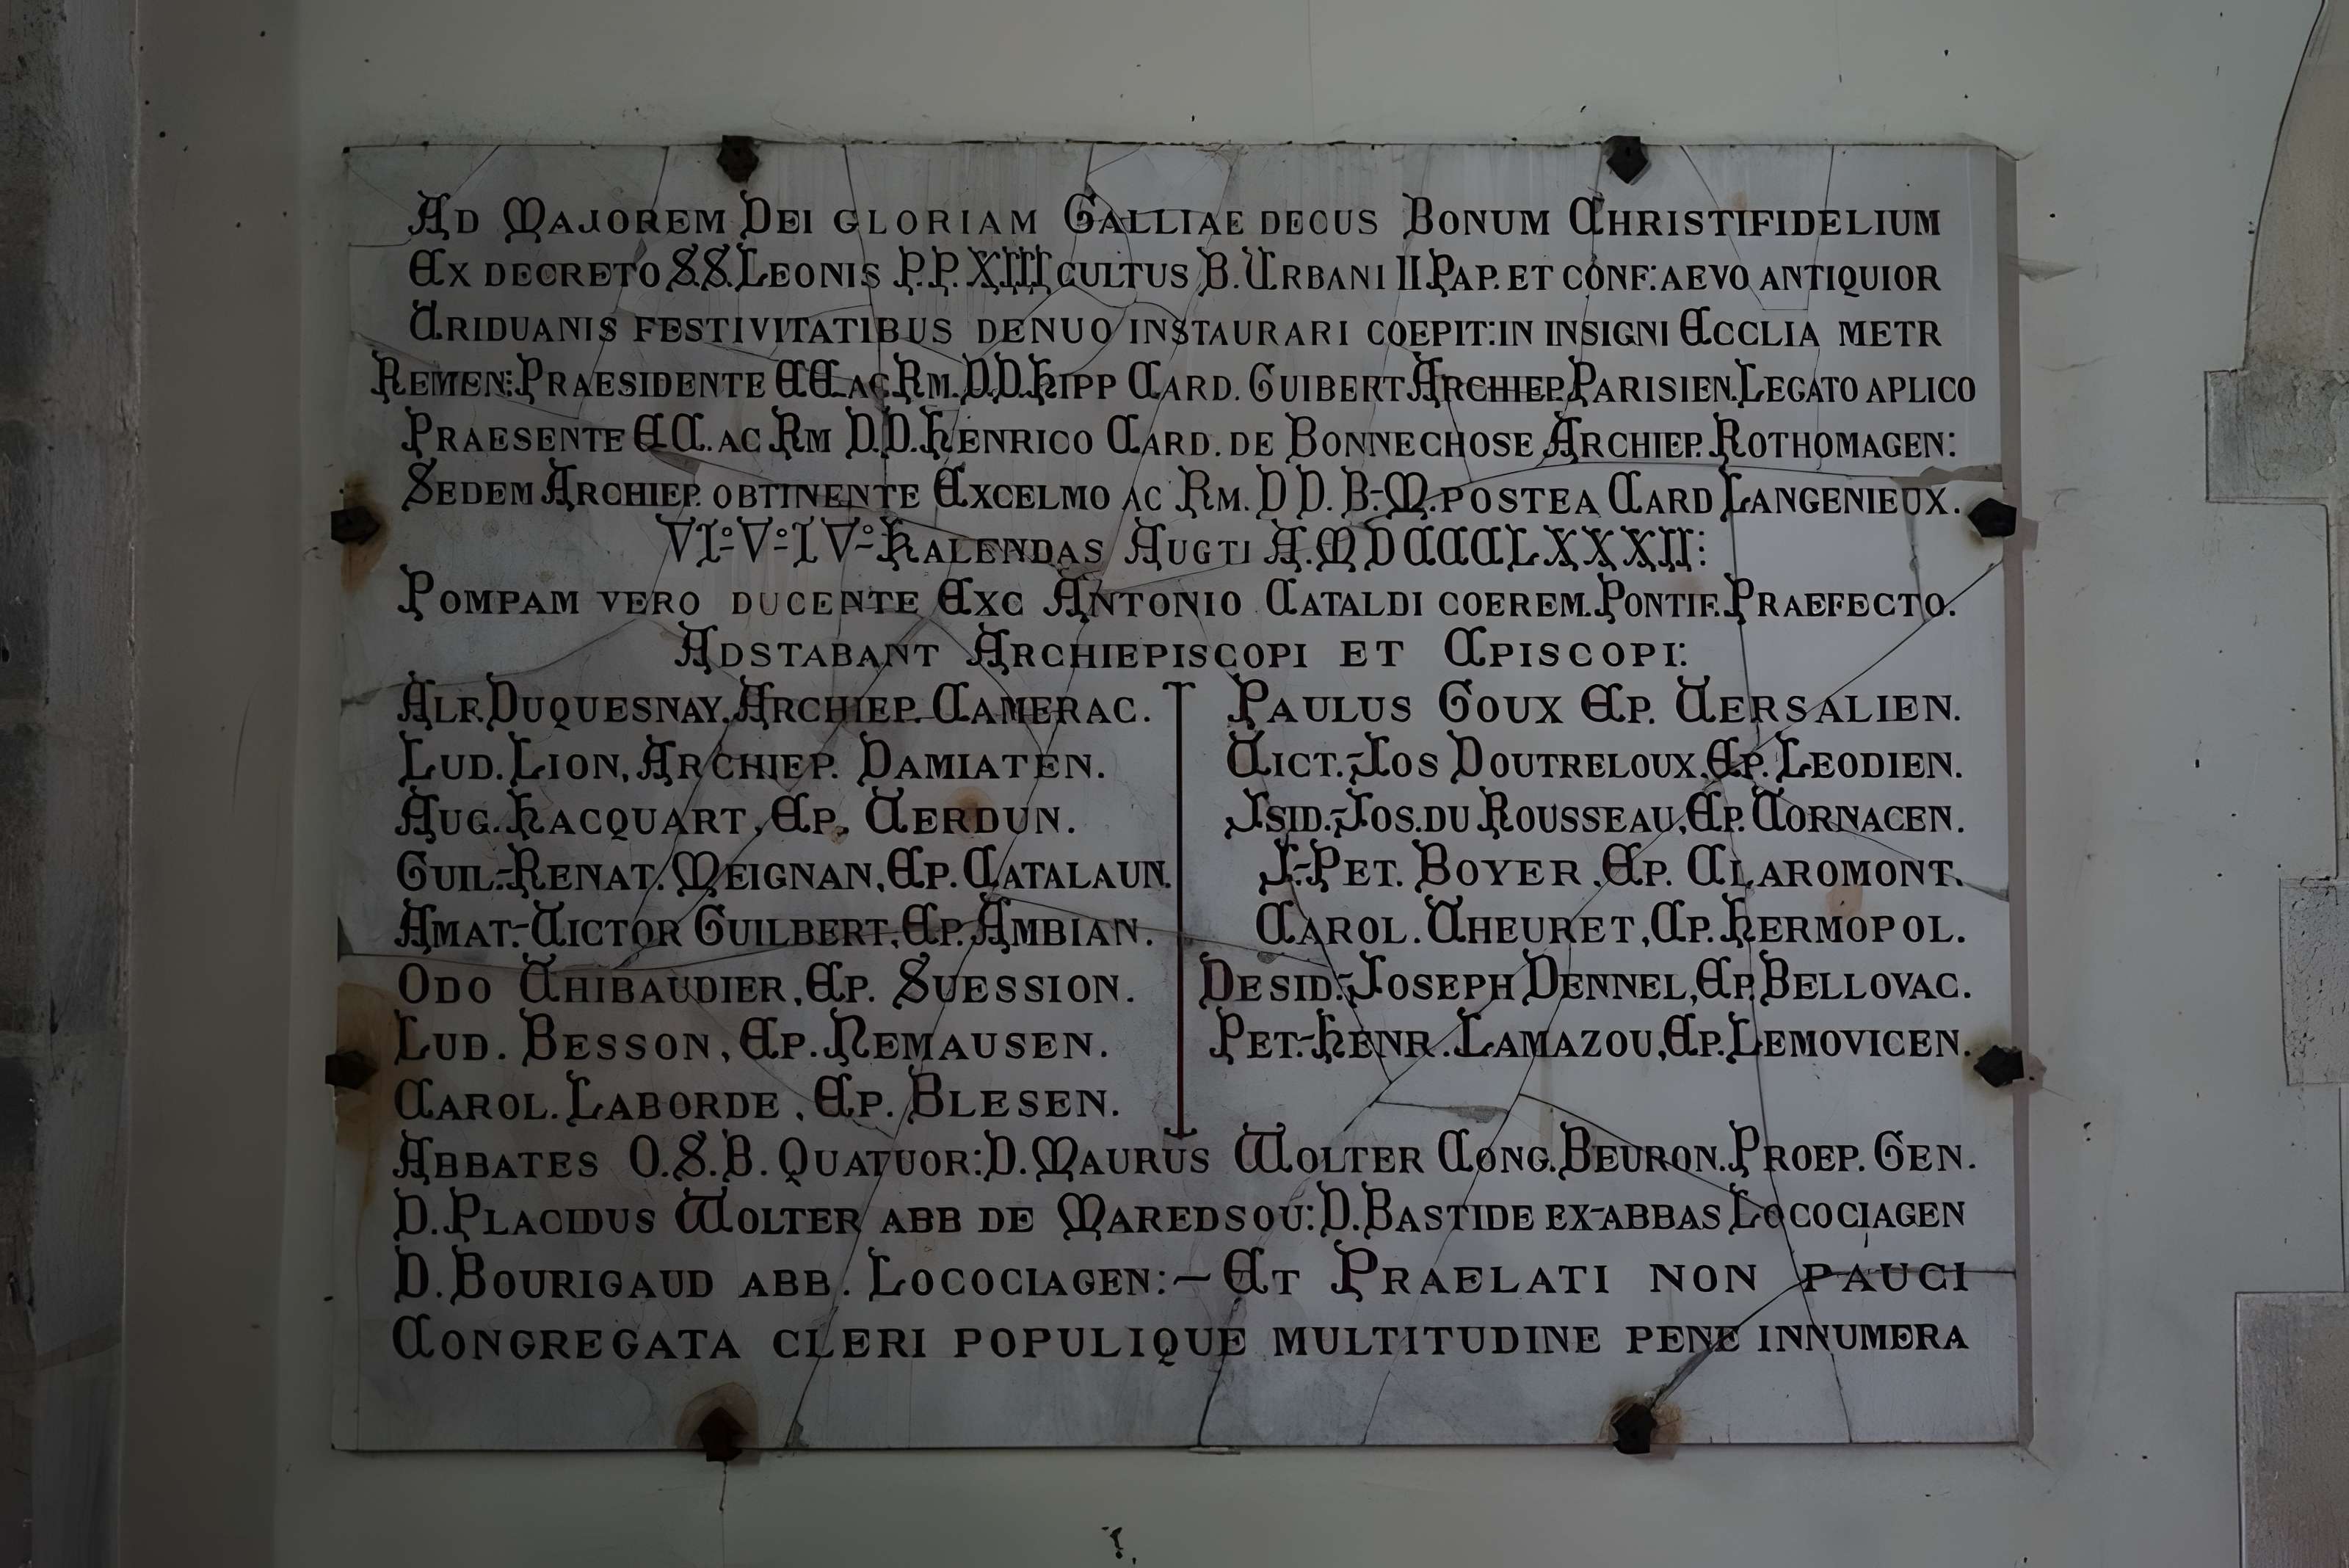 Ad Majorem Dei gloriam Galliae decus Bonum Christifidelium
Ex decreto S.S. Leonis P.P. XIII cultus B. Urbani II Pap. et conf: aevo antiquior
Triduanis festivitatibus denuo instaurari coepit: in insigni Ecclia metr
Remen: Praesidente EE. ac Rm. D.D. Hipp Card. Guibert Archiep. Parisien. Legato aplico
Praesente EE. ac Rm D.D. Henrico Card. de Bonnechose Archiep. Rothomagen:
Sedem Archiep. obtinente Excelmo ac Rm. D D. B-M. postea Card Langenieux.
VI° V° IV° Kalendas Augti A. MDCCCLXXXII:
Pompam vero ducente Exc Antonio Cataldi coerem. Pontif. Praefecto.
Adstabant Archiepiscopi et Episcopi:
Alf. Duquesnay, Archiep. Camerac.
Lud. Lion, Archiep. Damiaten.
Aug. Hacquart, Ep. Verdun.
Guil-Renat. Meignan, Ep. Catalaun.
Amat-Victor Guilbert, Ep. Ambian.
Odo Thibaudier, Ep. Suession.
Lud. Besson, Ep. Nemausen.
Carol. Laborde, Ep. Blesen.
Paulus Goux Ep. Versalien.
Vict.-Jos Doutreloux, Ep. Leodien.
Isid.-Jos. du Rousseau, Ep. Tornacen.
J-Pet. Boyer, Ep. Claromont.
Carol. Theuret, Ep. Hermopol.
Desid.-Joseph Dennel, Ep. Bellovac.
Pet-Henr. Lamazou, Ep. Lemovicen.
Abbates O.S.B. Quatuor: D. Maurus Wolter Cong. Beuron. Proep. Gen.
D. Placidus Wolter abb de Maredsou: D. Bastide ex-abbas Locociagen
D. Bourigaud abb. Locociagen: – Et Praelati non pauci
Congregata cleri populique multitudine pene innumera